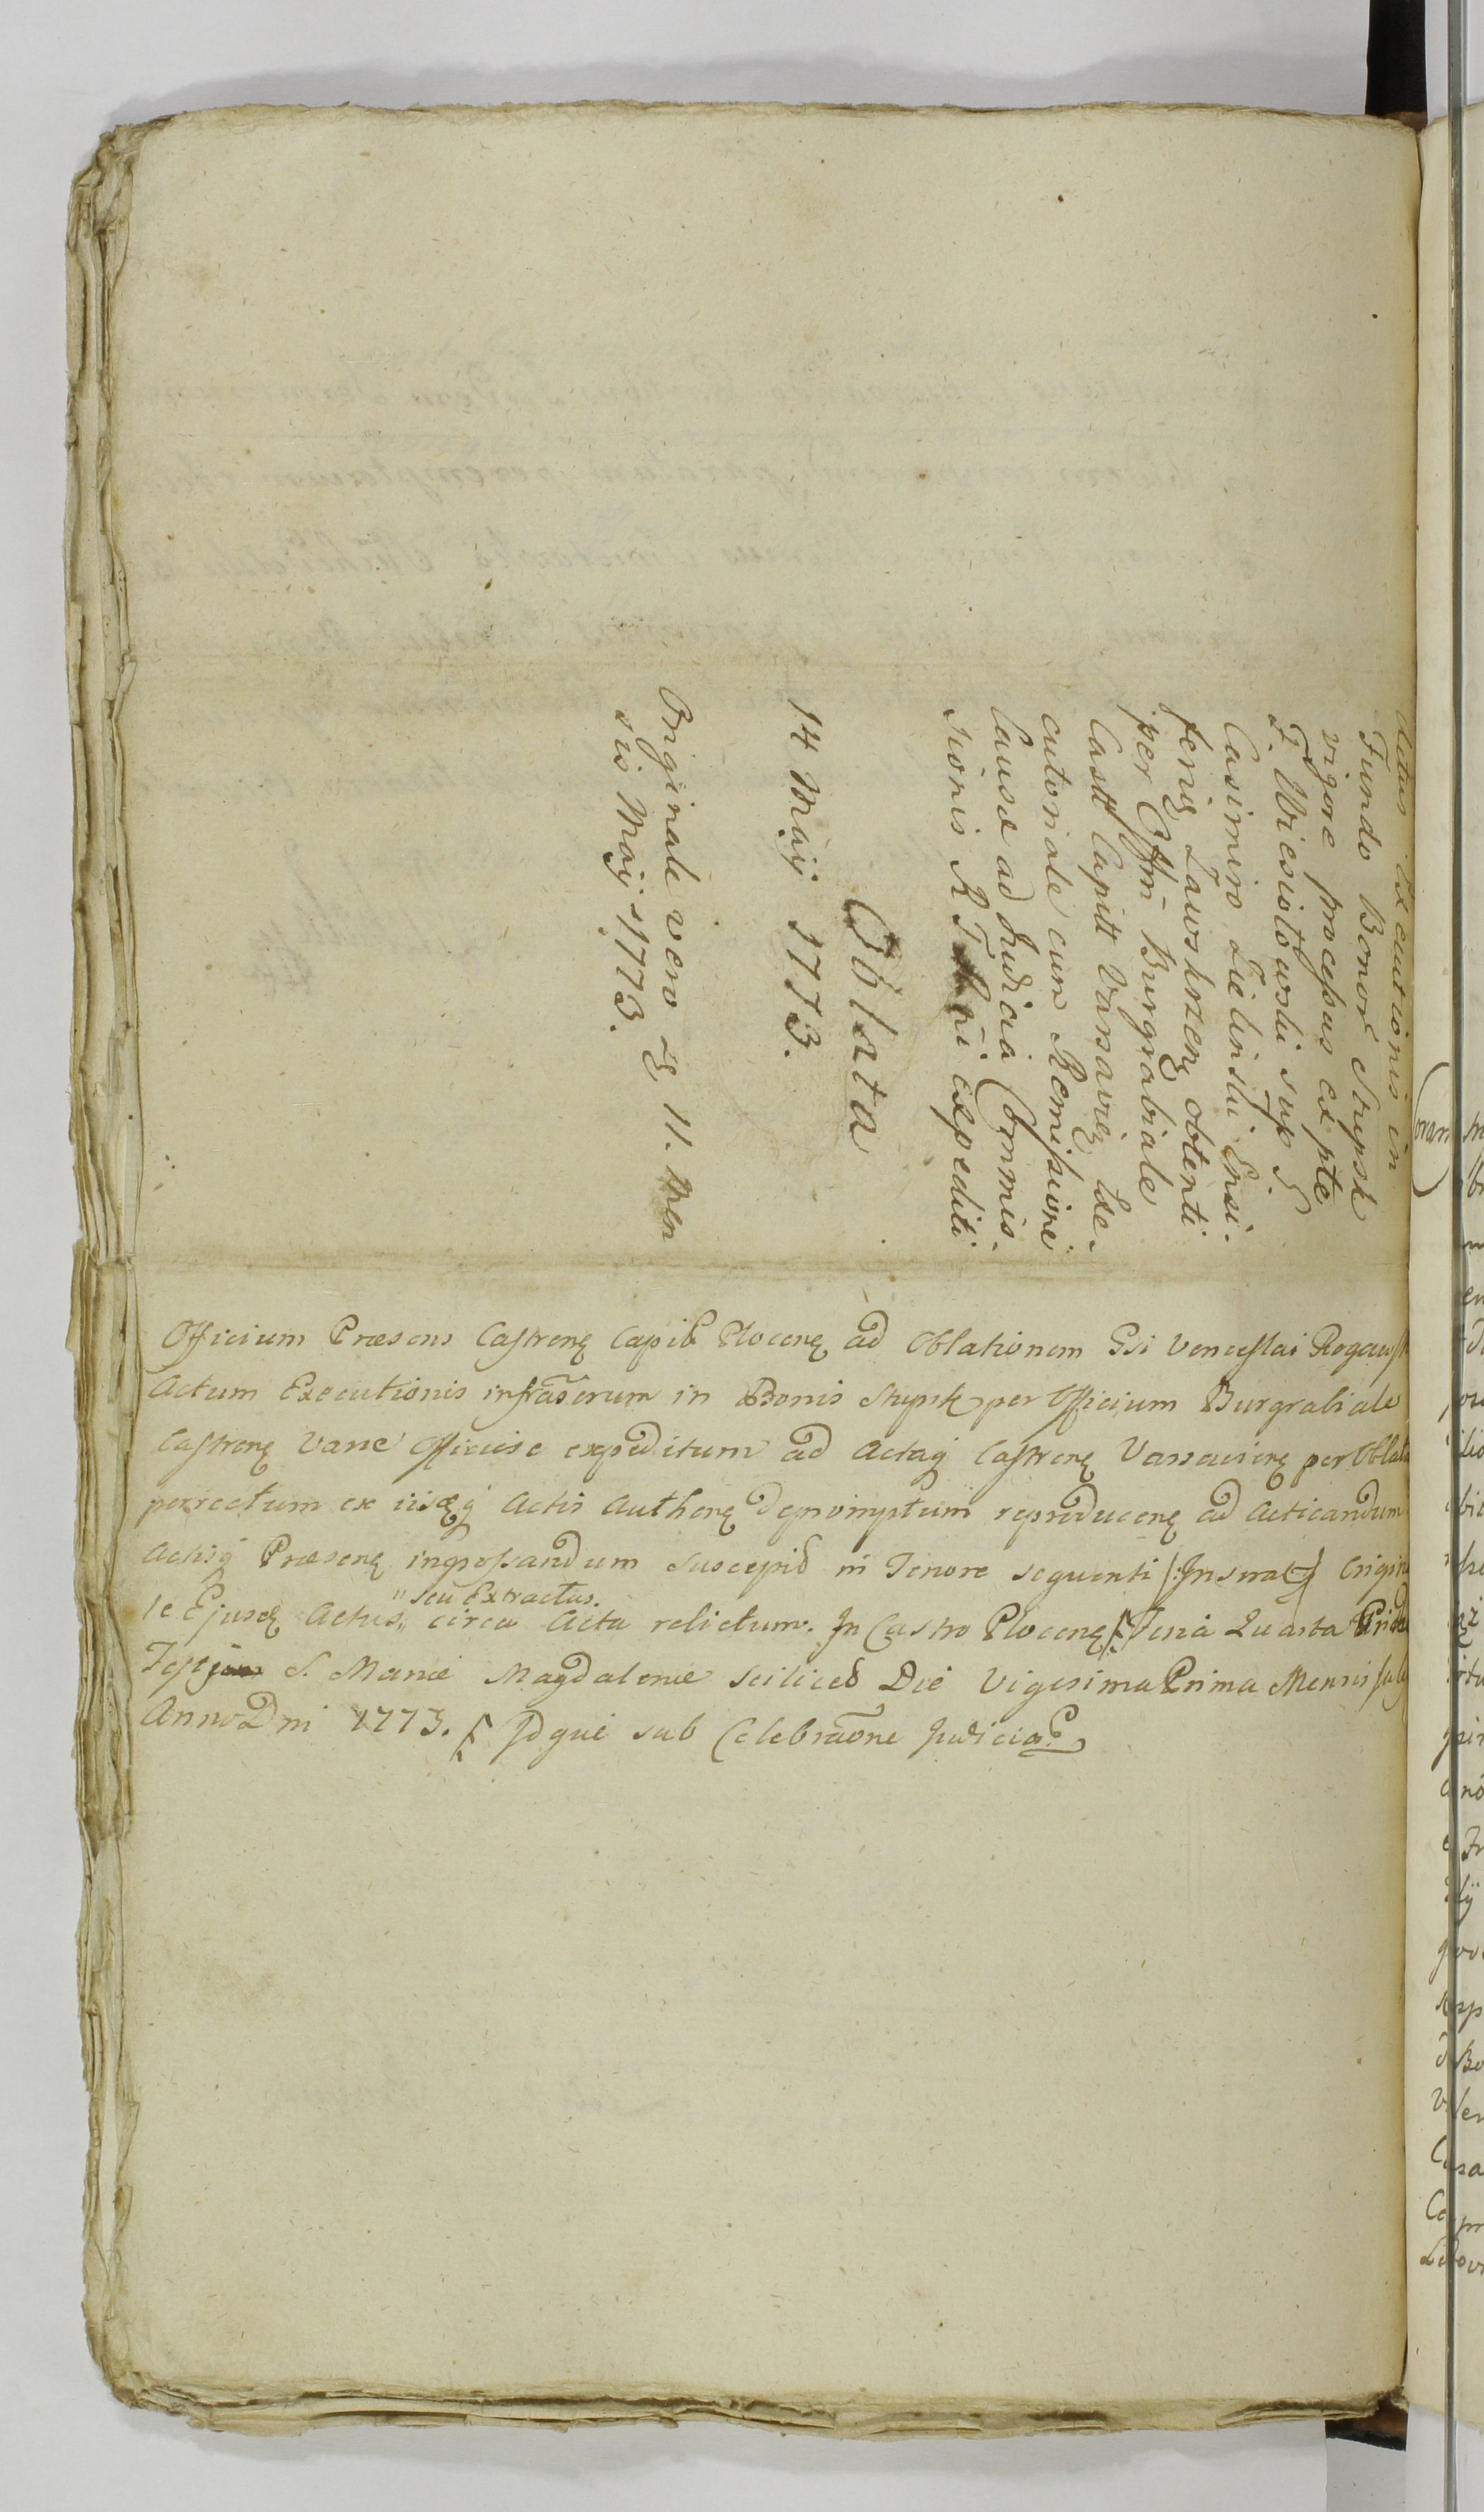 Actus Executionis in
Fundo Bonor Strupsk
vigore processus ex pte
F. Wiesiołowski sup G
Casimiro Zielinski Ensi-
feriꝫ Zawskrzenꝫ obtenti
per Offm Burgrabiale
Castr Capitt Varsavieꝫ Exe-
cutoriale cum Remissione
Causæ ad Judicia Commis-
sionis R T expediti
Oblata
14 Maij 1773.
Originale vero 11. Men
sis Maij 1773.
Officium Præsens Castrenꝫ Capit Plocenꝫ ad Oblationem Gsi Venceslai Rogawsk
Actum Executionis infrascrum in Bonis Strupsk per Officium Burgrabiale
Castrenꝫ Varse Officiose expeditum ad Actaq Castrenꝫ Varsavienꝫ per Oblatam
porrectum ex iisdq Actis Authenꝫ depromptum reproducenꝫ ad Acticandum
Actisq Præsenꝫ ingrossandum suscepit in Tenore sequenti /: Inserat :/ Origina
"seu Extractus.
le Ejusdꝫ Actus,, circa Acta relictum. In Castro Plocenꝫ Feria Quarta Pridie
Festi S. Mariæ Magdalenæ scilicet Die Vigesima Prima Mensis July
Anno Dni 1773. Idque sub Celebraõne Judicior